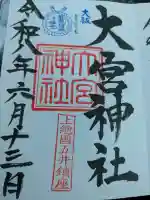 大祓
大宮神社
大宮
神社
上総國五井鎮座
令和六年六月十三日